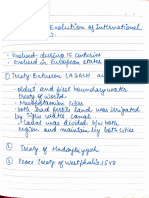 Evolution of International
- Evolved during 15 centuries
- Evolved in European states
① Treaty Between LAGASH
- oldest and first boundary water
treaty of world
- Mesopotamian cities
- both had fertile land was irrigated
by Tigris water canal
- Canal was divided b/w both
region and maintain by both cities
② Treaty of Hadaybiyyah
③ Peace Treaty of Westphalia 1648